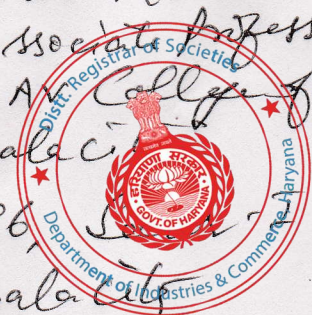 ssociate Profess
AV College of
ala city
6,
ala city
Distt. Registrar of Societies
Department of Industries & Commerce Haryana
हरियाणा सरकार
GOVT. OF HARYANA